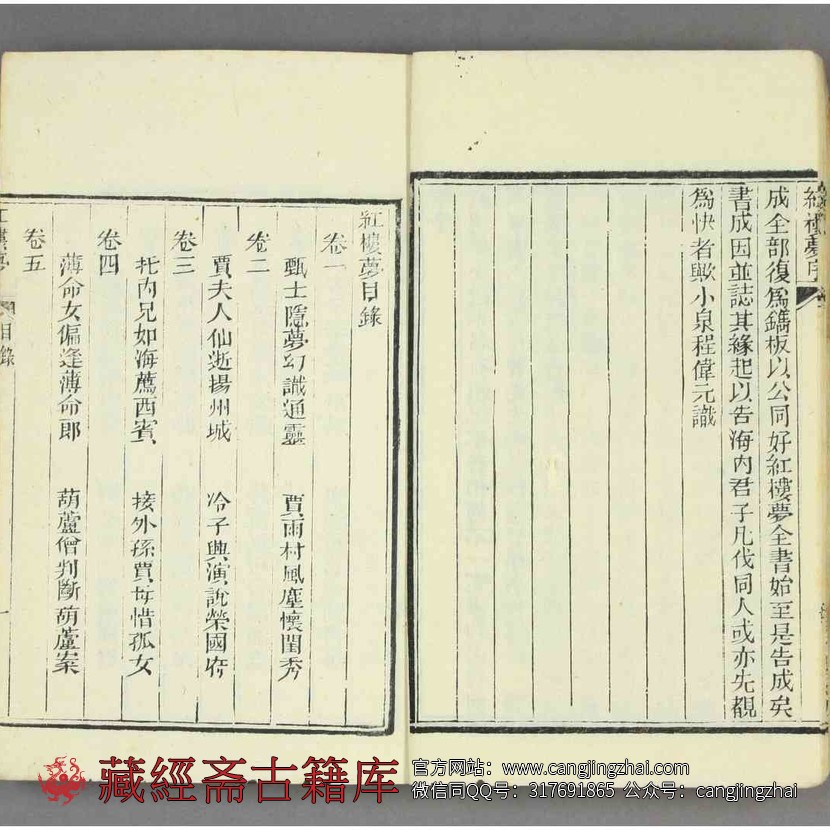 紅樓夢序
成全部復爲鐫板以公同好紅樓夢全書始至是告成矣
書成因並誌其緣起以告海內君子凡伐同人或亦先覩
爲快者歟小泉程偉元識
紅樓夢目錄
卷一
甄士隱夢幻識通靈 賈雨村風塵懷閨秀
卷二
賈夫人仙逝揚州城 冷子興演說榮國府
卷三
托內兄如海薦西賓 接外孫賈母惜孤女
卷四
薄命女偏逢薄命郎 葫蘆僧判斷葫蘆案
卷五
紅樓夢 目錄 一
藏經斋古籍库
官方网站：www.cangjingzhai.com
微信同QQ号：317691865 公众号：cangjingzhai